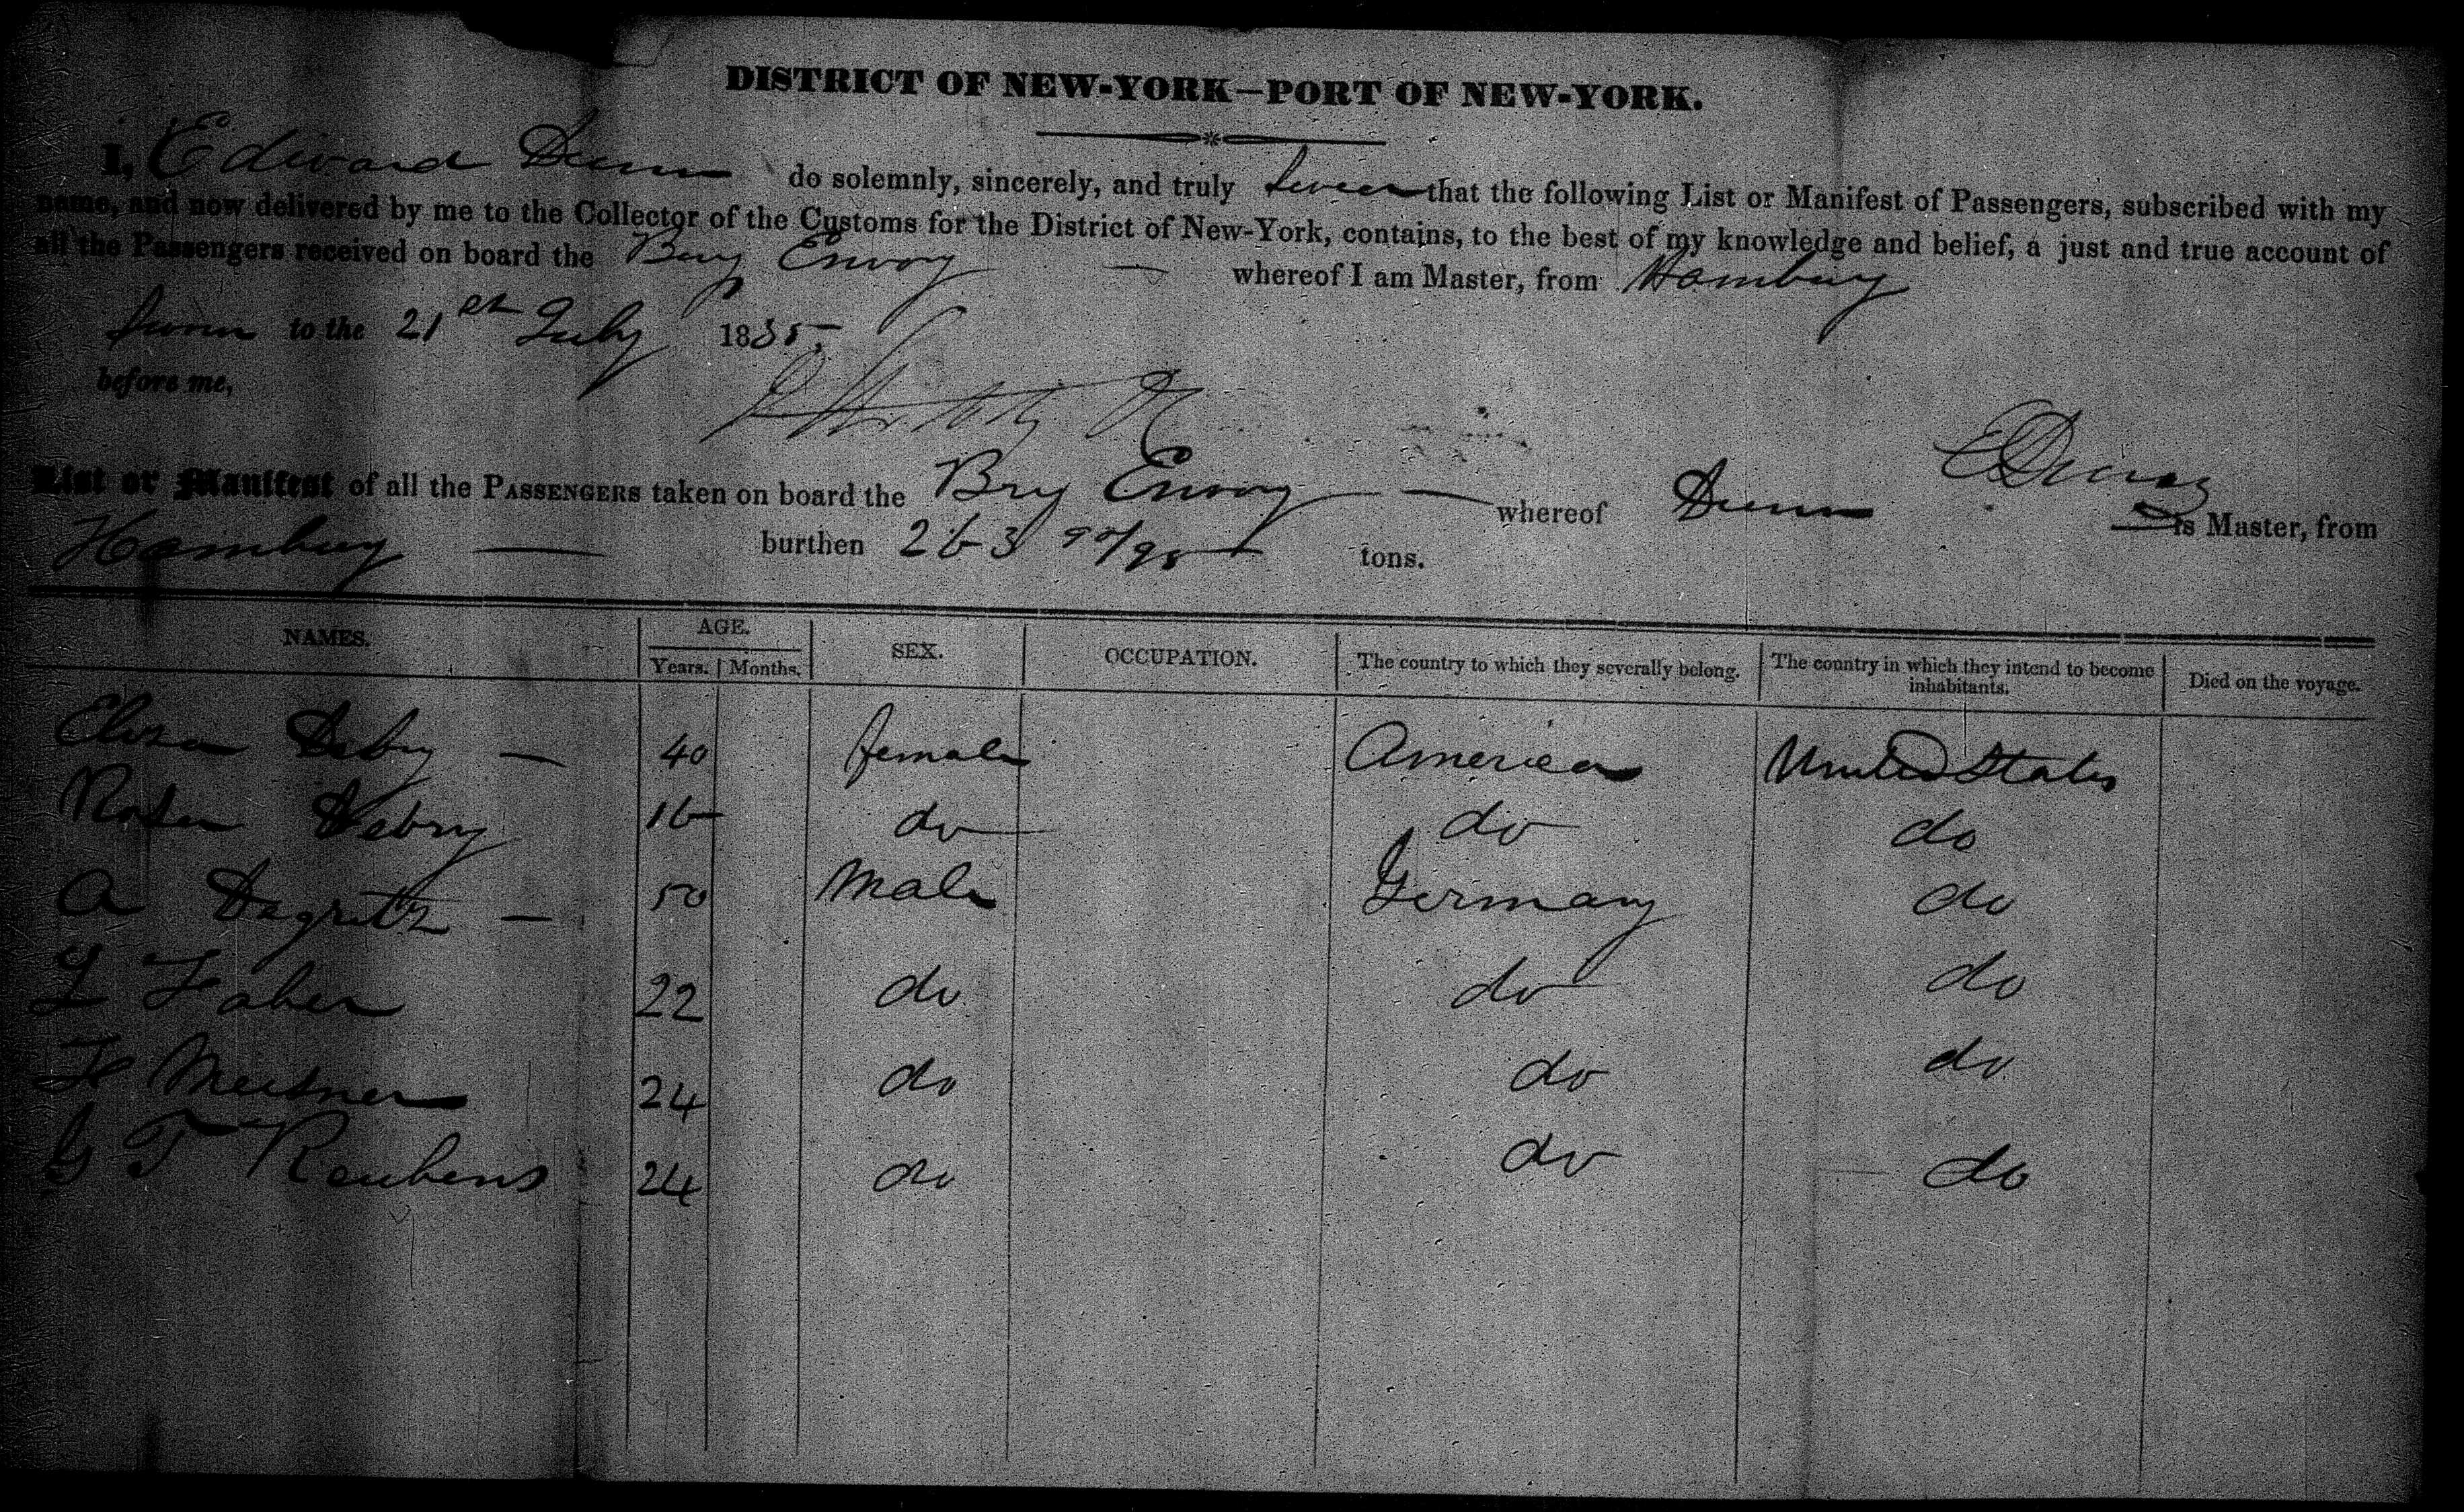 DISTRICT OF NEW-YORK—PORT OF NEW-YORK.
I, Edward Dunn do solemnly, sincerely, and truly swear that the following List or Manifest of Passengers, subscribed with my
name, and now delivered by me to the Collector of the Customs for the District of New-York, contains, to the best of my knowledge and belief, a just and true account of
all the Passengers received on board the Brig Envoy — whereof I am Master, from Hamburg
Sworn to the 21st July 1835.
before me,
List or Manifest of all the PASSENGERS taken on board the Brig Envoy — whereof Dunn is Master, from
Hamburg — burthen 263 90/95 tons.
NAMES. AGE. Years. Months. SEX. OCCUPATION. The country to which they severally belong. The country in which they intend to become inhabitants. Died on the voyage.
Eliza — 40 female America United States
16 do do do
A — 50 Male Germany do
L Faber 22 do do do
24 do do do
G T Reubens 24 do do do